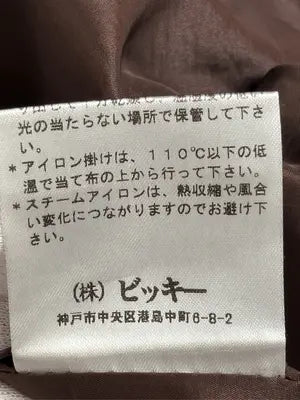 光の当たらない場所で保管して下さ
い。
＊アイロン掛けは、１１０℃以下の低
温で当て布の上から行って下さい。
＊スチームアイロンは、熱収縮や風合
い変化につながりますのでお避け下
さい。
（株）ビッキー
神戸市中央区港島中町6-8-2